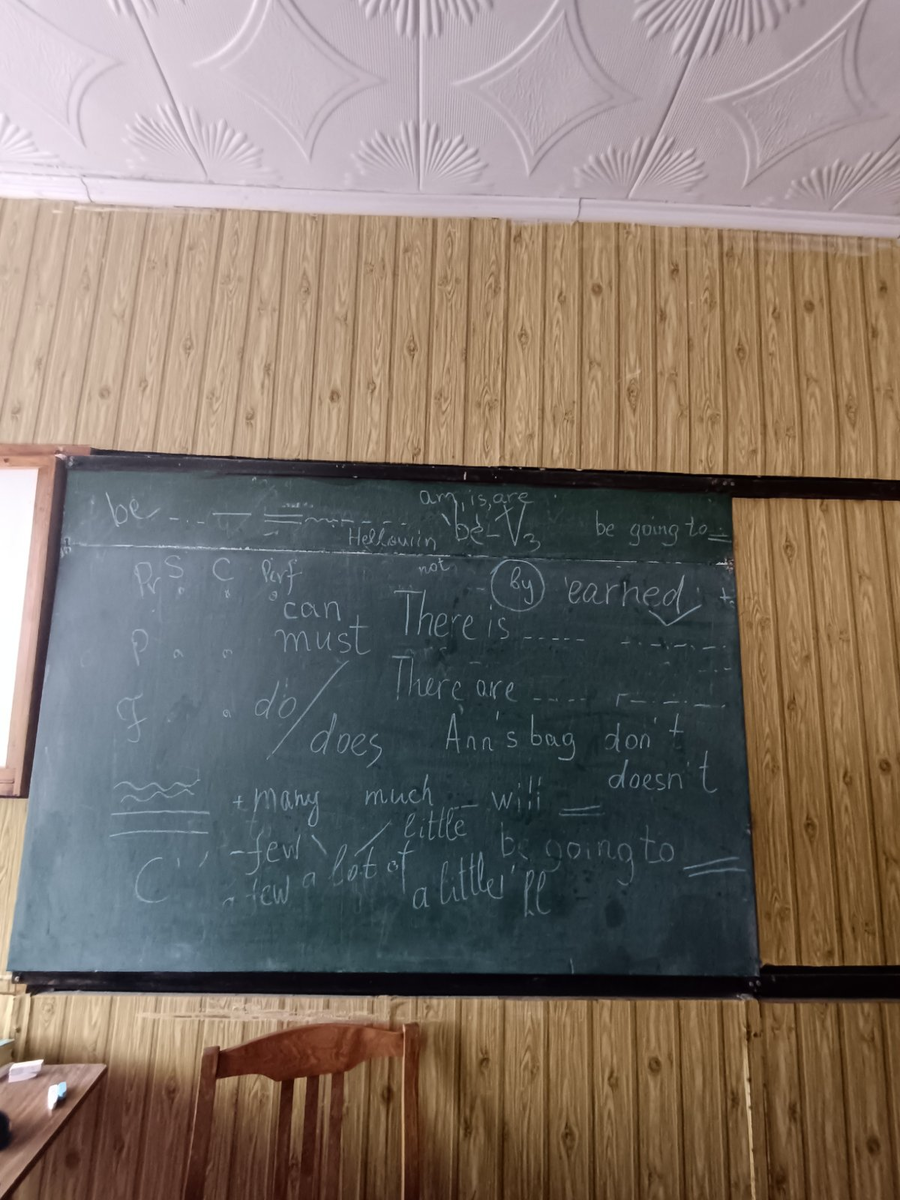 am, is, are
be be-V3 be going to
Hellowin
Pr S C Perf not By earned +
can There is
P must
There are
F do/does
Ann's bag don't
doesn't
+many much will
-few little be going to
C a few a lot of a little 'll